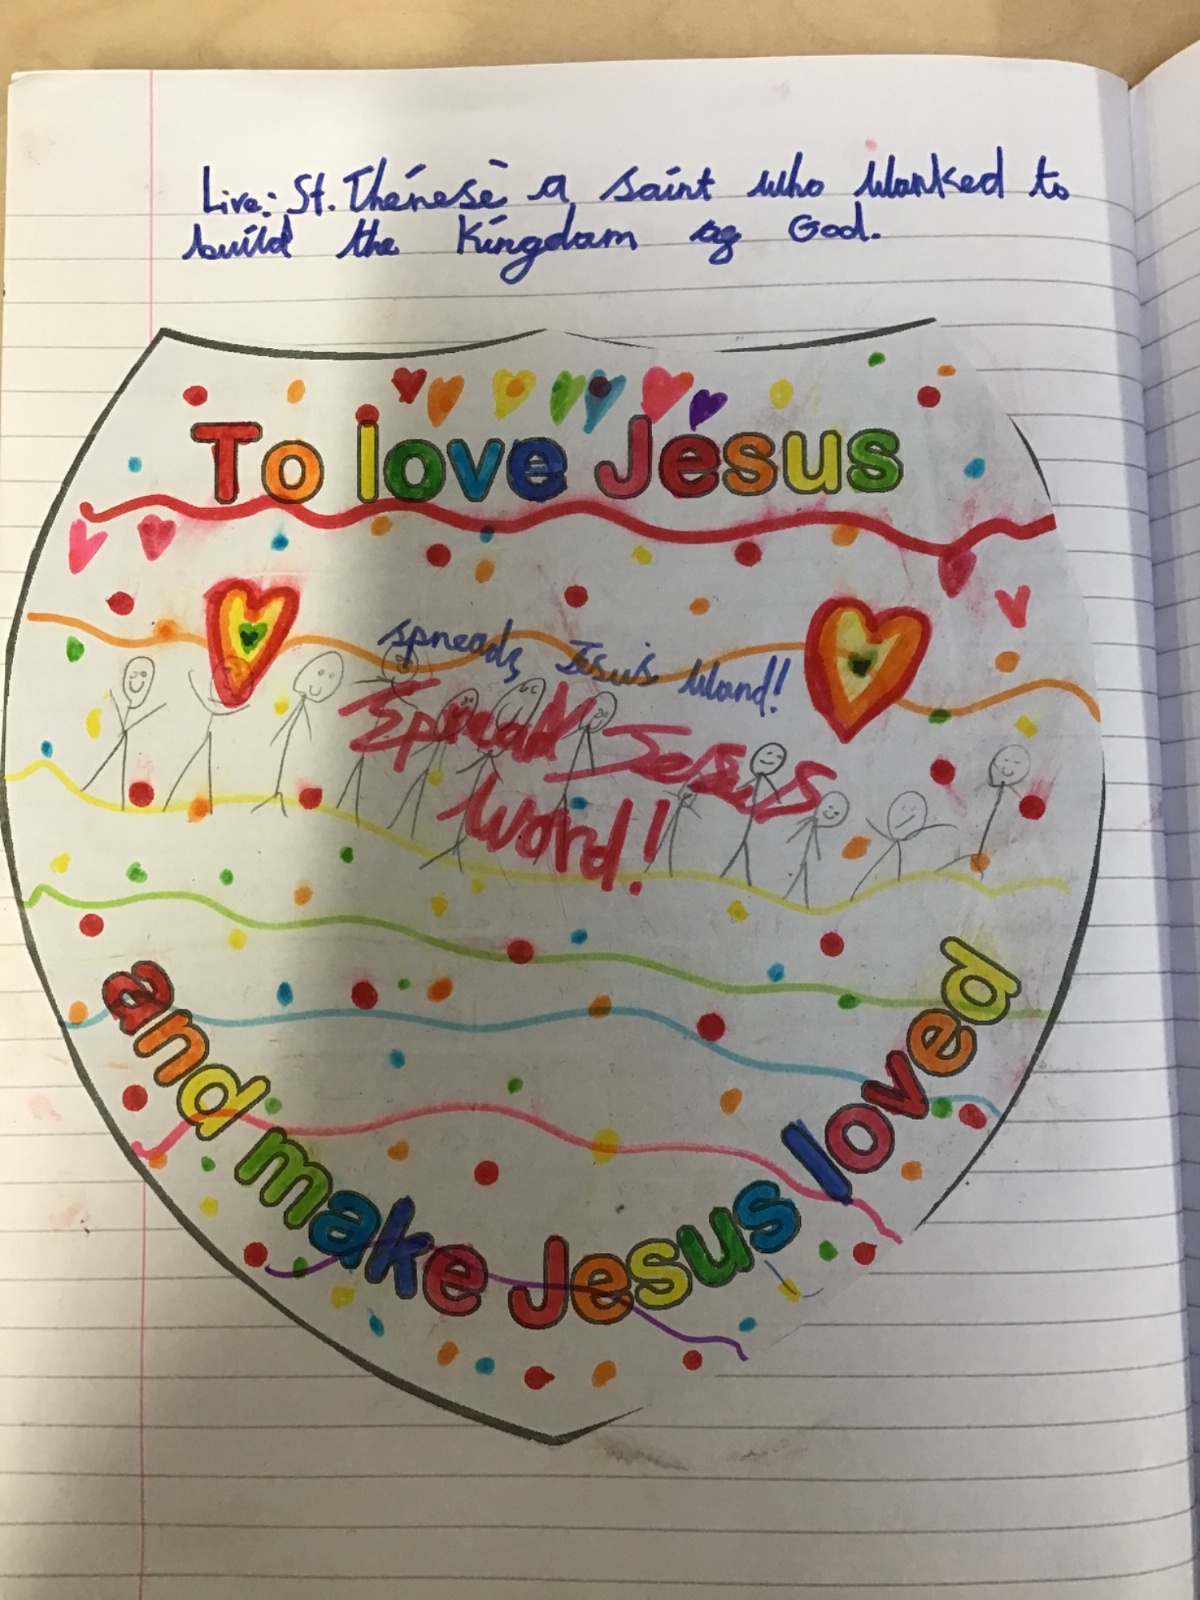 Live: St. Thérése a saint who worked to
build the Kingdom of God.
To love Jesus
spreads Jesus Word!
Spread Jesus
Word!
and make Jesus loved